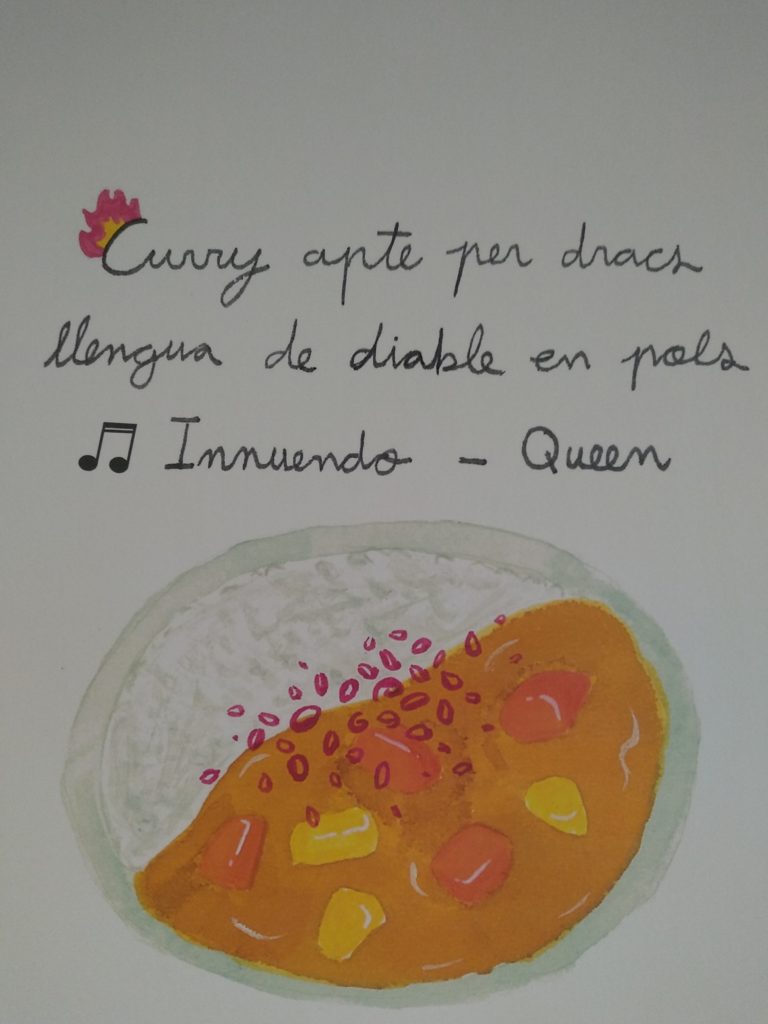 Curry apte per dracs
llengua de diable en pols
♫ Innuendo - Queen